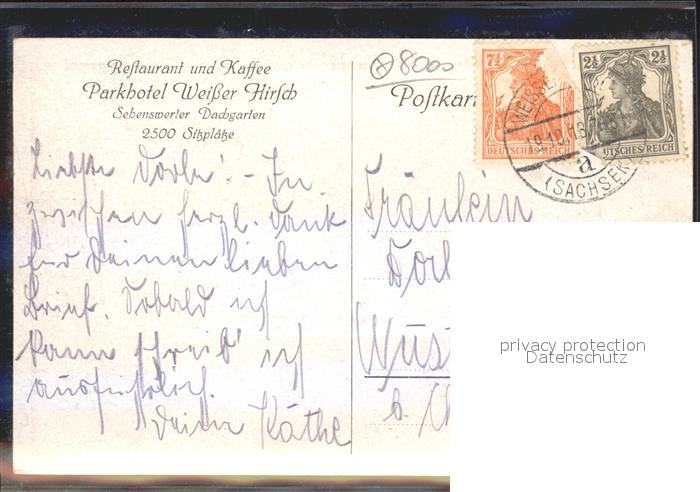 Restaurant und Kaffee
Parkhotel Weißer Hirsch
Sehenswerter Dachgarten
2500 Sitzplätze
8000
Postkar
7½
2½ 2½
DEUTSCHES REICH
UTSCHES REICH
WEISSE
a
(SACHSEN)
Liebste Dorle! - In-
zwischen herzl. Dank
für Deinen lieben
Brief. Sobald ich
kann schreib' ich
ausführlich.
Deine Käthe
Fräulein
Dor
Wüs
b.
privacy protection
Datenschutz